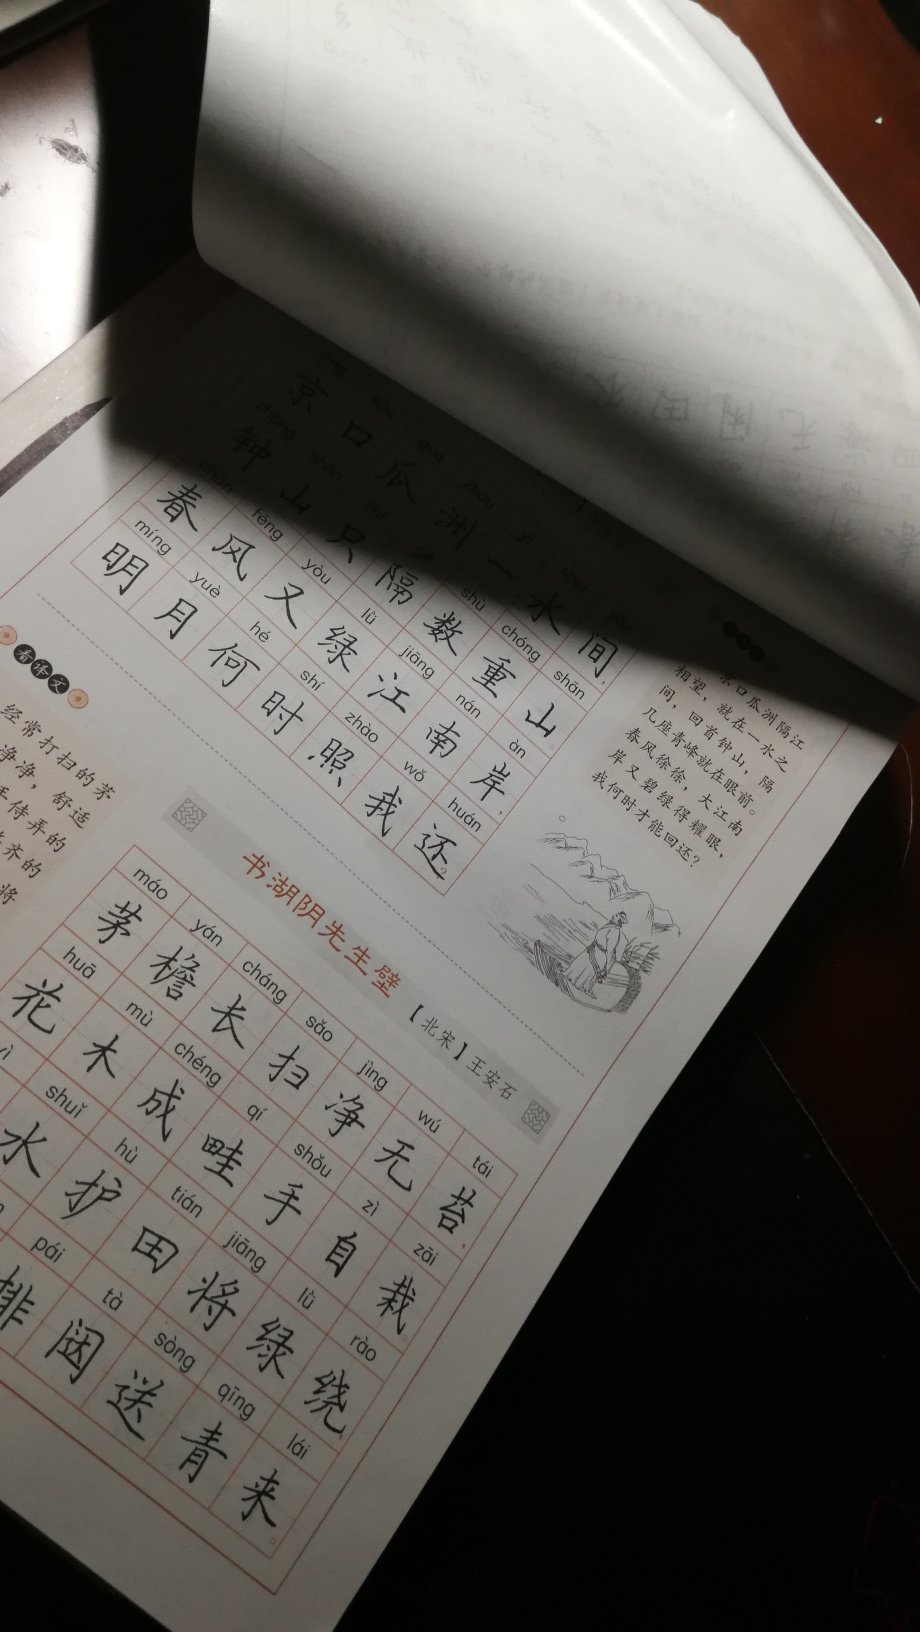 kǒu guā zhōu yī shuǐ
京口瓜洲一水间，
zhōng shān zhǐ gé shù chóng shān
钟山只隔数重山。
chūn fēng yòu lǜ jiāng nán àn
春风又绿江南岸，
míng yuè hé shí zhào wǒ huán
明月何时照我还。
京口瓜洲隔江
相望，就在一水之
间，回首钟山，隔
几座青峰就在眼前。
春风徐徐，大江南
岸又碧绿得耀眼，
我何时才能回还？
看译文
经常打扫的茅
净净，舒适
手侍弄的
齐的
将
书湖阴先生壁
【北宋】王安石
máo yán cháng sǎo jìng wú tái
茅檐长扫净无苔，
huā mù chéng qí shǒu zì zāi
花木成畦手自栽。
shuǐ hù tián jiāng lǜ rào
水护田将绿绕，
pái tà sòng qīng lái
排闼送青来。